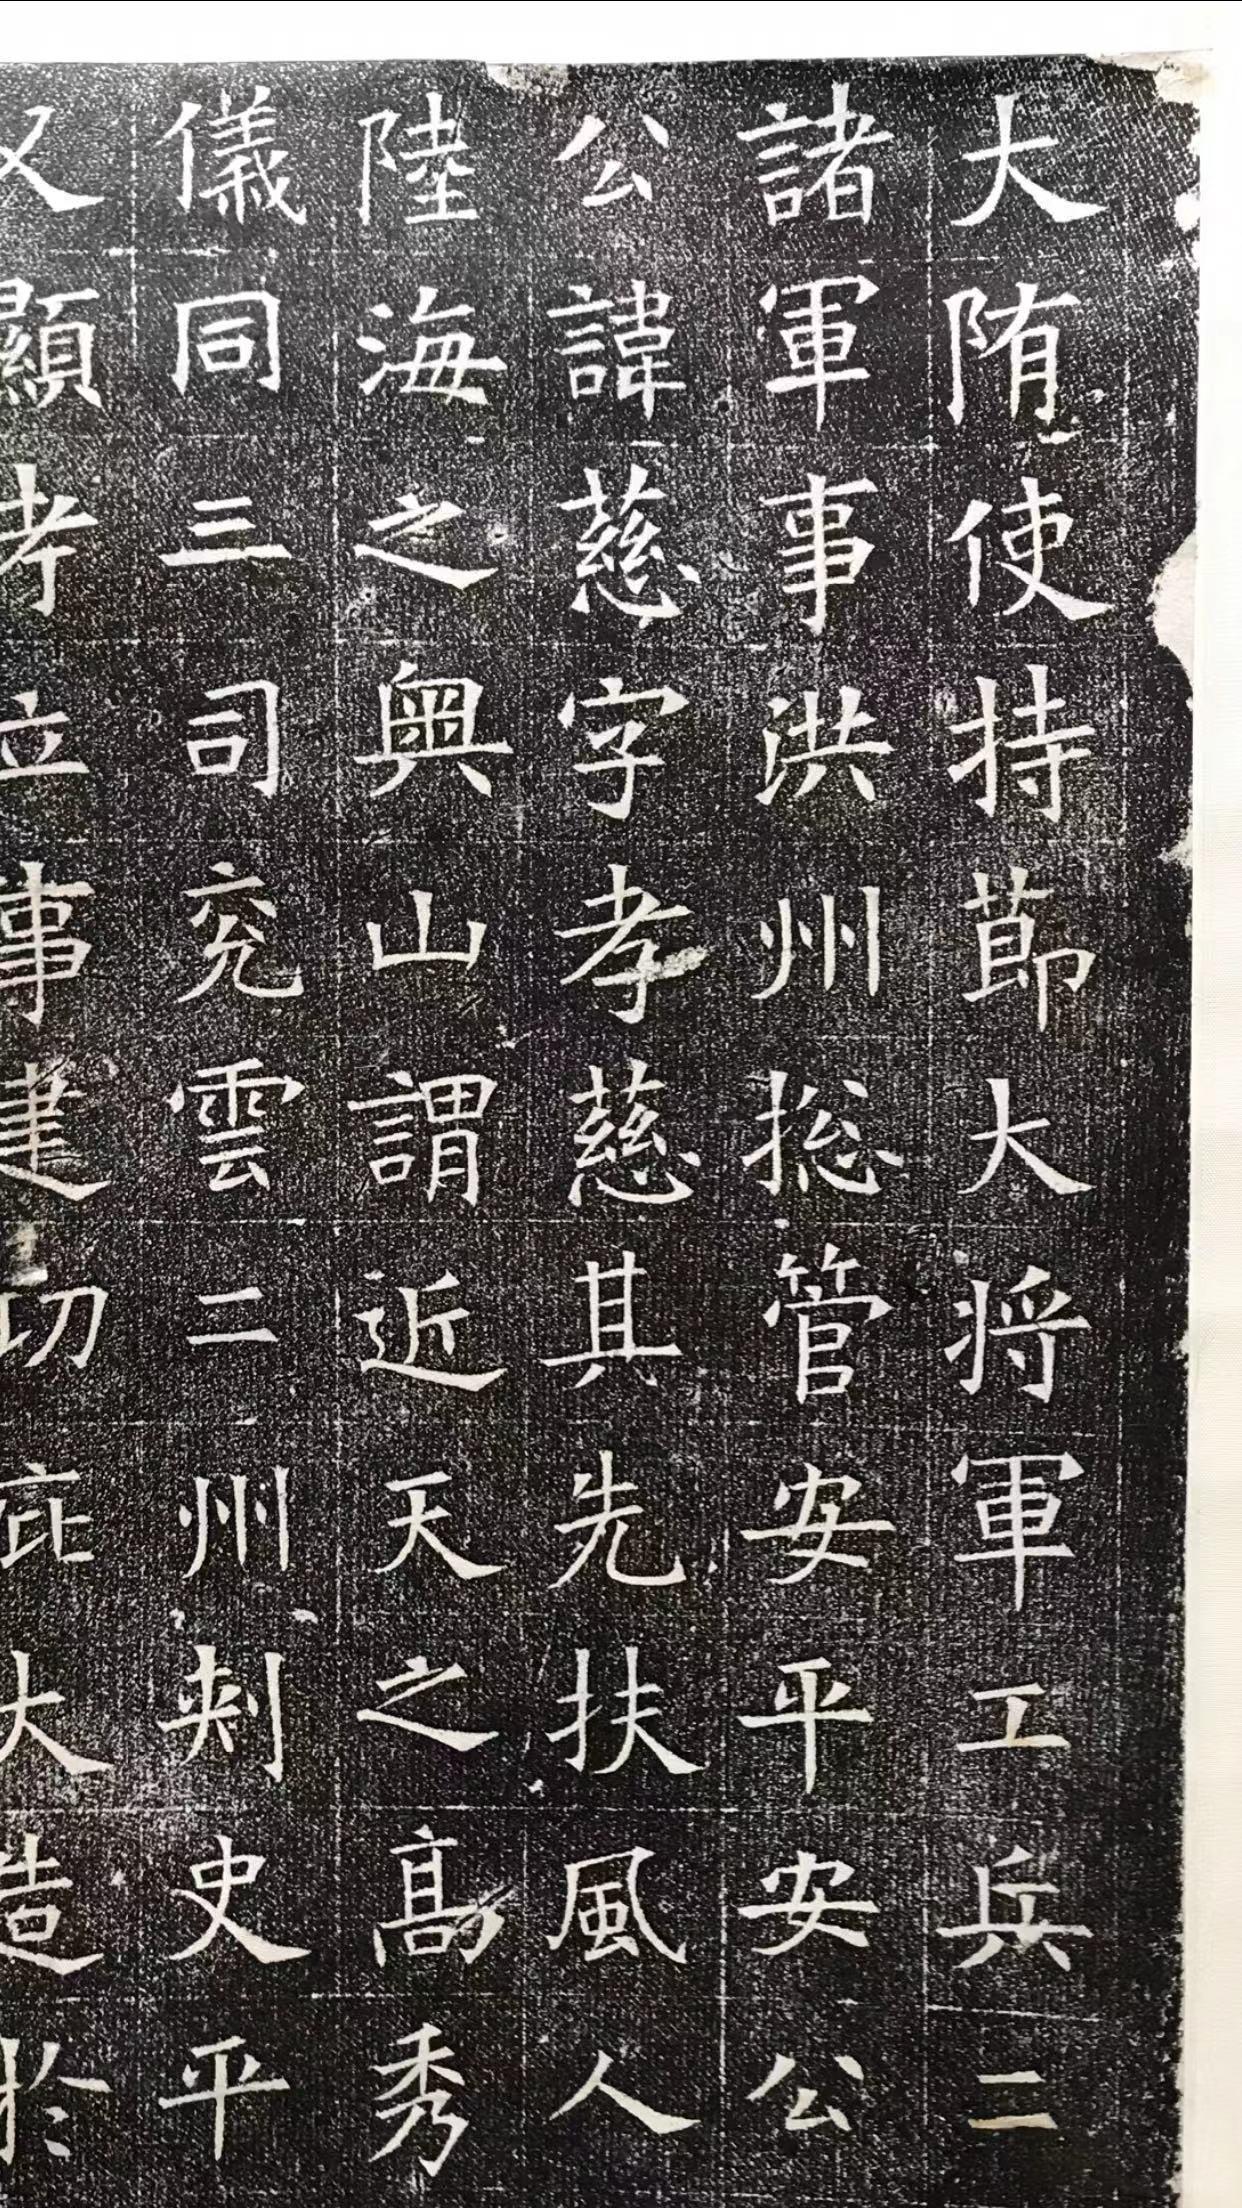 大隋使持節大將軍工兵二
諸軍事洪州揔管安平安公
公諱慈字孝慈其先扶風人
陸海之奥山謂近天之高秀
儀同三司兖雲二州刺史平
又顯考立事建切庇大造於